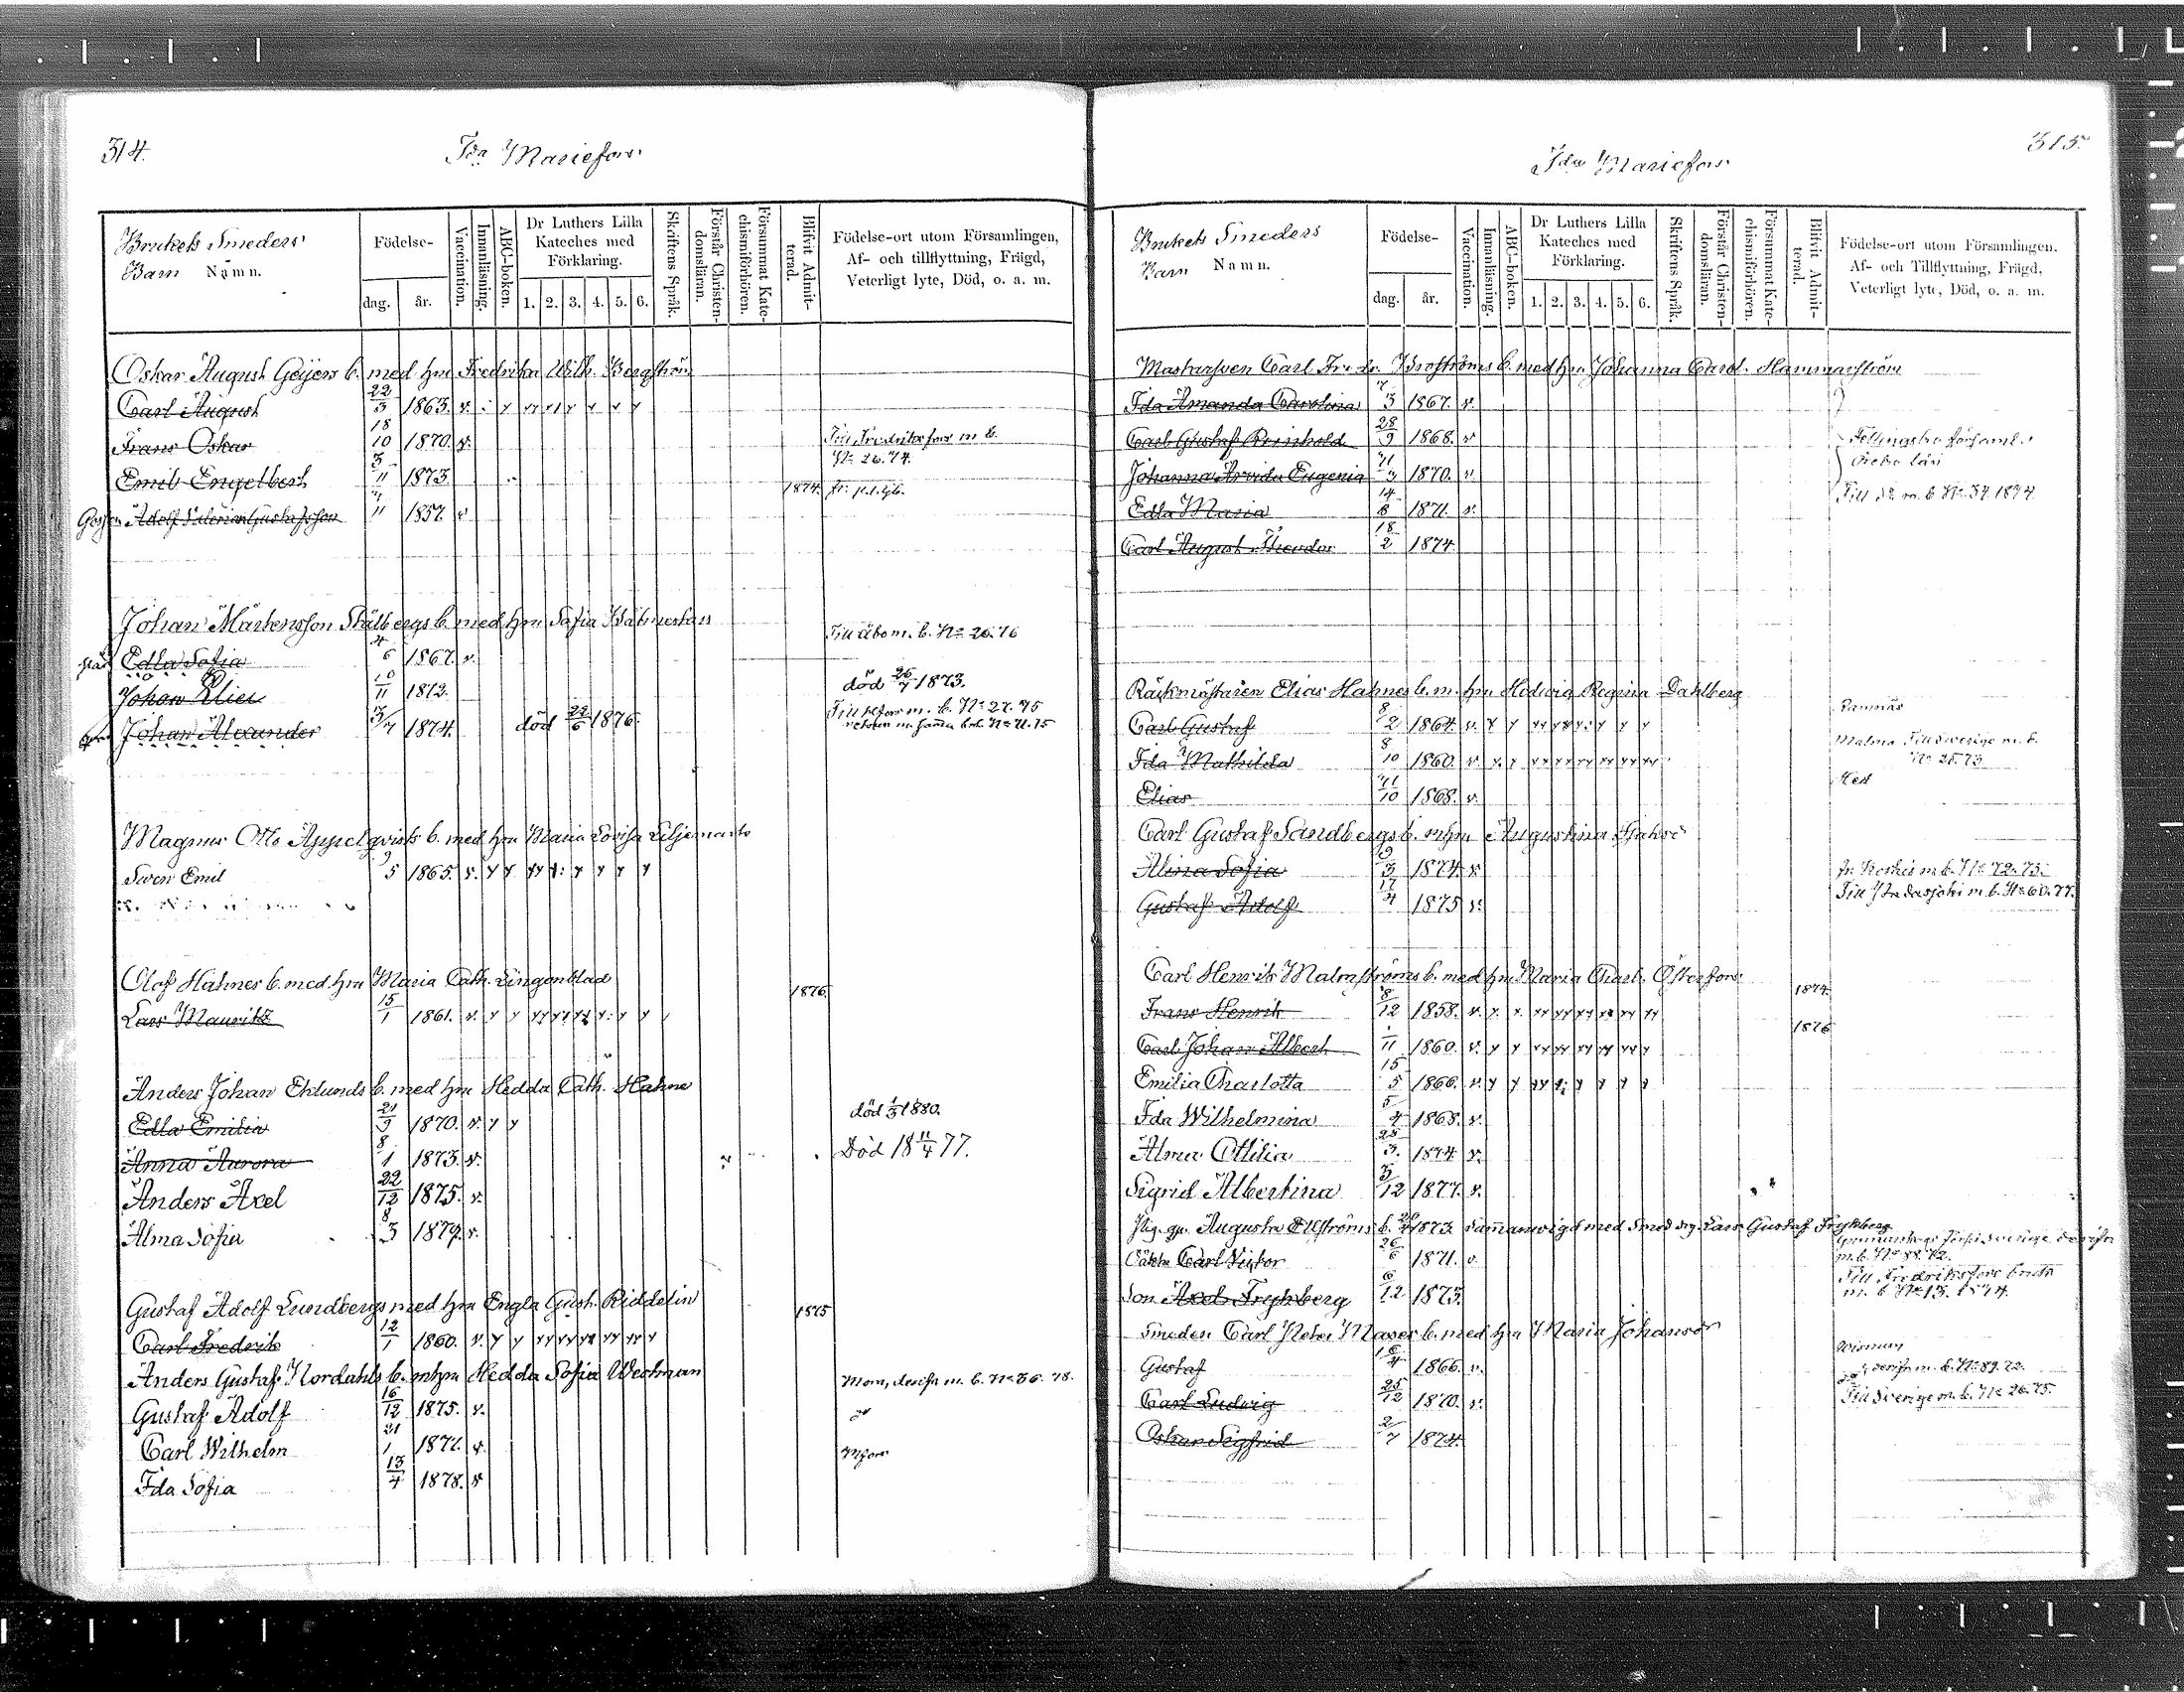 314.
Ida Mariefors
Brukets Smeders
Barn Namn.
Födelse-
dag.
år.
Vaccination.
Innanläsning.
ABC-boken.
Dr Luthers Lilla
Kateches med
Förklaring.
1. 2. 3. 4. 5. 6.
Skriftens Språk.
Förstår Christen-
domsläran.
Försummat Kate-
chismiförhören.
Blifvit Admit-
terad.
Födelse-ort utom Församlingen,
Af- och tillflyttning, Frägd,
Veterligt lyte, Död, o. a. m.
Oskar August Geijers b. med hru Fredrika Wilh. Bergström
Carl August 22/3 1863. v.
Frans Oskar 18/10 1870. v. Till Fredriksfors m b.
Emil Engelbert 3/11 1873. No 26. 74.
Adolf Valerian Gustafsson 7/11 1857. v 1874.
Johan Mårtensson Stålbergs b. med hru Sofia
Edla Sofia 4/6 1867. v. Till Åbo m. b. No 20. 76
Johan Elier 10/11 1872. död 26/7 1873.
Johan Alexander 3/7 1874. död 22/6 1876. m. b. No 27. 75
Magnus Otto Appelqvists b. med hru Maria Lovisa
Sven Emil 9/5 1865. v.
Olof Hahnes b. med hru Maria Cath. Lingonblad
Lars Mauritz 15/1 1861. v. 1876.
Anders Johan Eklunds b. med hru Hedda Cath. Hahne
Edla Emilia 21/9 1870. v. död 1/3 1880.
Anna Aurora 8/1 1873. v. Död 18 11/4 77.
Anders Axel 22/12 1875. v.
Alma Sofia 8/3 1879. v.
Gustaf Adolf Lundbergs med hru Engla Gust. Riddelin
Carl Fredrik 12/1 1860. v. 1875
Anders Gustaf Nordahls b. m hru Hedda Sofia Westman
Gustaf Adolf 16/12 1875. v. Mom, derifr m. b. No 36. 78.
Carl Wilhelm 21/1 1877. v. d:o
Ida Sofia 13/4 1878. v Mfors
315.
Ida Mariefors
Brukets Smeders
Barn Namn.
Födelse-
dag.
år.
Vaccination.
Innanläsning.
ABC-boken.
Dr Luthers Lilla
Kateches med
Förklaring.
1. 2. 3. 4. 5. 6.
Skriftens Språk.
Förstår Christen-
domsläran.
Försummat Kate-
chismiförhören.
Blifvit Admit-
terad.
Födelse-ort utom Församlingen.
Af- och Tillflyttning, Frägd,
Veterligt lyte, Död, o. a. m.
Mastarsven Carl Fredr. Broströms b. med hru Johanna Carol. Hammarström
Ida Amanda Carolina 7/3 1867. v.
Carl Gustaf Reinhold 28/9 1868. v Fellingsbro församl.
Johanna Arvida Eugenia 11/3 1870. v. Örebro län
Edla Maria 14/6 1871. v. Till do m. b No 34 1874.
Carl August Theodor 18/2 1874
Räckmästaren Elias Hahnes b. m. hru Hedwig Regina Dahlberg
Carl Gustaf 8/2 1864. v.
Ida Mathilda 8/10 1860. v. Malma Till Sverige m. b.
No 28. 73
Elias 11/10 1868. v. Med
Carl Gustaf Sandbergs b. m hru Augustina
Alina Sofia 9/3 1874. v fr. Koskis m. b. No 72. 75.
Gustaf Adolf 17/4 1875 v. Till m. b. No 60. 77.
Carl Henrik Malmströms b. med hru Maria Charl. Österfors
Frans Henrik 8/12 1858. v. 1874.
Carl Johan Albert 1/11 1860. v. 1876
Emilia Charlotta 15/5 1866. v.
Ida Wilhelmina 5/4 1868. v.
Alma Ottilia 25/3. 1874 v.
Sigrid Albertina 5/12 1877. v.
Augusta Ellströms b. 1873 sammanvigd med Smed Lars Gustaf Frykberg
Oäkta Carl Victor 26/6 1871. v. m. b. No 88. 72.
Till Fredriksfors bruk
Son Axel Frykberg 6/12 1873. m. b No 13. 1874.
Smeden Carl Peter Mazers b. med hru Maria Johansdr
Gustaf 18/4 1866. v. derifr m. b. No 89. 72.
Carl Ludvig 25/12 1870. v. Till Sverige m. b. No 26. 75.
Oskar Sigfrid 2/7 1874.